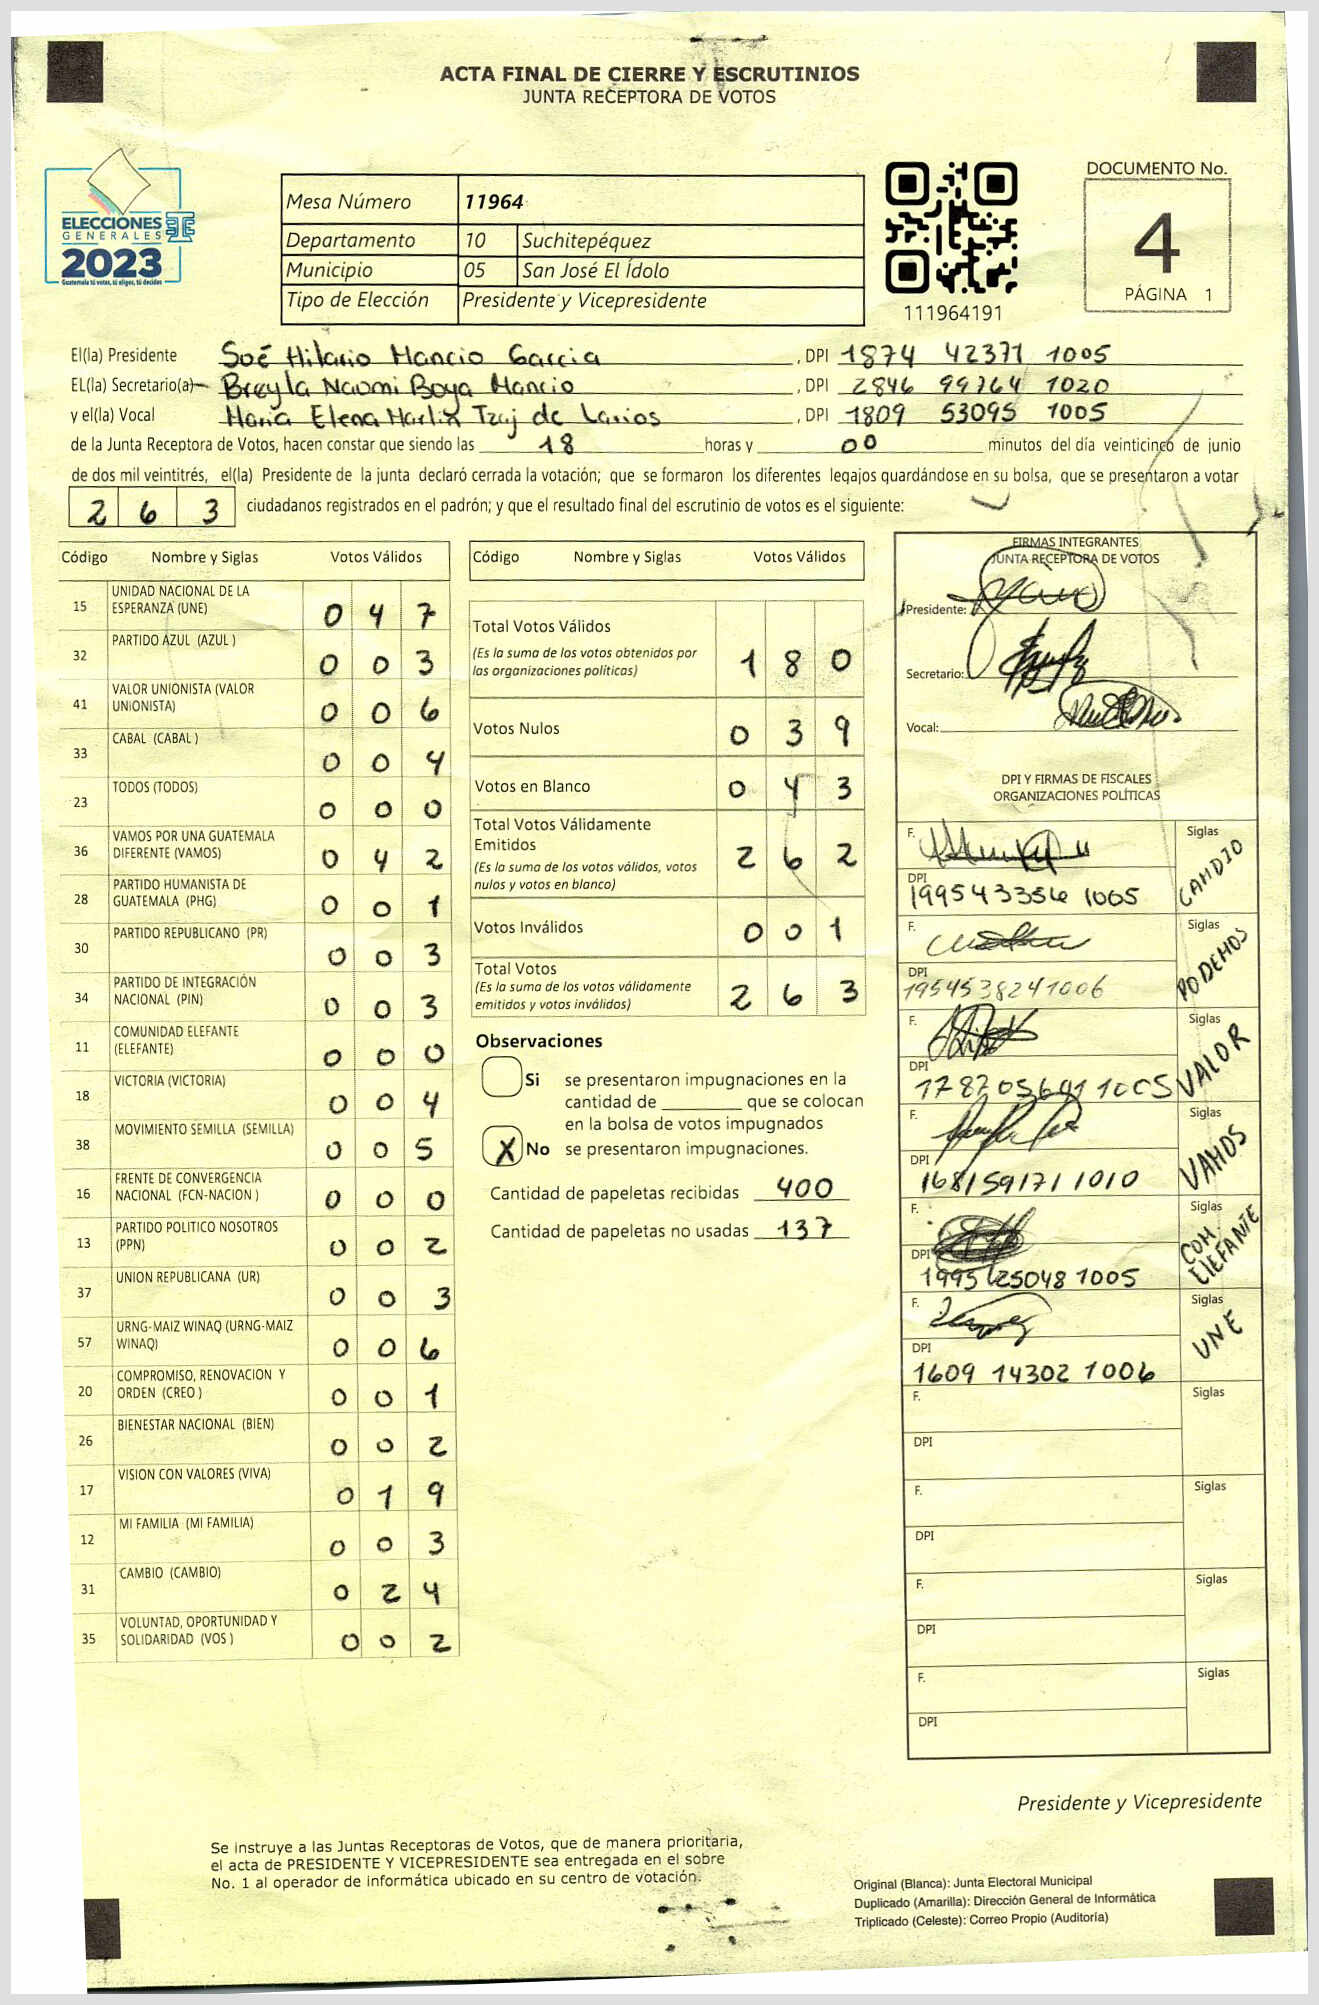 ACTA FINAL DE CIERRE Y ESCRUTINIOS
JUNTA RECEPTORA DE VOTOS
ELECCIONES
GENERALES
2023
Guatemala tú votas, tú eliges, tú decides
Mesa Número 11964
Departamento 10 Suchitepéquez
Municipio 05 San José El Ídolo
Tipo de Elección Presidente y Vicepresidente
111964191
DOCUMENTO No.
4
PÁGINA 1
El(la) Presidente Soé Hilario Mancio Garcia , DPI 1874 42371 1005
EL(la) Secretario(a) Breyla Naomi Boya Mancio , DPI 2846 99764 1020
y el(la) Vocal Maria Elena Marlix Tzaj de Larios , DPI 1809 53095 1005
de la Junta Receptora de Votos, hacen constar que siendo las 18 horas y 00 minutos del día veinticinco de junio
de dos mil veintitrés, el(la) Presidente de la junta declaró cerrada la votación; que se formaron los diferentes legajos guardándose en su bolsa, que se presentaron a votar
263 ciudadanos registrados en el padrón; y que el resultado final del escrutinio de votos es el siguiente:
Código Nombre y Siglas Votos Válidos
15 UNIDAD NACIONAL DE LA
ESPERANZA (UNE) 0 4 7
32 PARTIDO AZUL (AZUL ) 0 0 3
41 VALOR UNIONISTA (VALOR
UNIONISTA) 0 0 6
33 CABAL (CABAL ) 0 0 4
23 TODOS (TODOS) 0 0 0
36 VAMOS POR UNA GUATEMALA
DIFERENTE (VAMOS) 0 4 2
28 PARTIDO HUMANISTA DE
GUATEMALA (PHG) 0 0 1
30 PARTIDO REPUBLICANO (PR) 0 0 3
34 PARTIDO DE INTEGRACIÓN
NACIONAL (PIN) 0 0 3
11 COMUNIDAD ELEFANTE
(ELEFANTE) 0 0 0
18 VICTORIA (VICTORIA) 0 0 4
38 MOVIMIENTO SEMILLA (SEMILLA) 0 0 5
16 FRENTE DE CONVERGENCIA
NACIONAL (FCN-NACION ) 0 0 0
13 PARTIDO POLITICO NOSOTROS
(PPN) 0 0 2
37 UNION REPUBLICANA (UR) 0 0 3
57 URNG-MAIZ WINAQ (URNG-MAIZ
WINAQ) 0 0 6
20 COMPROMISO, RENOVACION Y
ORDEN (CREO ) 0 0 1
26 BIENESTAR NACIONAL (BIEN) 0 0 2
17 VISION CON VALORES (VIVA) 0 1 9
12 MI FAMILIA (MI FAMILIA) 0 0 3
31 CAMBIO (CAMBIO) 0 2 4
35 VOLUNTAD, OPORTUNIDAD Y
SOLIDARIDAD (VOS ) 0 0 2
Código Nombre y Siglas Votos Válidos
Total Votos Válidos 1 8 0
(Es la suma de los votos obtenidos por
las organizaciones políticas)
Votos Nulos 0 3 9
Votos en Blanco 0 4 3
Total Votos Válidamente
Emitidos 2 6 2
(Es la suma de los votos válidos, votos
nulos y votos en blanco)
Votos Inválidos 0 0 1
Total Votos
(Es la suma de los votos válidamente
emitidos y votos inválidos) 2 6 3
Observaciones
Si se presentaron impugnaciones en la
cantidad de ________ que se colocan
en la bolsa de votos impugnados
X No se presentaron impugnaciones.
Cantidad de papeletas recibidas 400
Cantidad de papeletas no usadas 137
FIRMAS INTEGRANTES
JUNTA RECEPTORA DE VOTOS
Presidente:
Secretario:
Vocal:
DPI Y FIRMAS DE FISCALES
ORGANIZACIONES POLÍTICAS
F. Siglas
CAMBIO
DPI
199543356 1005
F. Siglas
PODEMOS
DPI
1954538241006
F. Siglas
VALOR
DPI
178705691 1005
F. Siglas
VAMOS
DPI
1681591711010
F. Siglas
COM.
ElEFANTE
DPI
1995 25048 1005
F. Siglas
UNE
DPI
1609 14302 1006
F. Siglas
DPI
F. Siglas
DPI
F. Siglas
DPI
F. Siglas
DPI
Presidente y Vicepresidente
Se instruye a las Juntas Receptoras de Votos, que de manera prioritaria,
el acta de PRESIDENTE Y VICEPRESIDENTE sea entregada en el sobre
No. 1 al operador de informática ubicado en su centro de votación.
Original (Blanca): Junta Electoral Municipal
Duplicado (Amarilla): Dirección General de Informática
Triplicado (Celeste): Correo Propio (Auditoría)